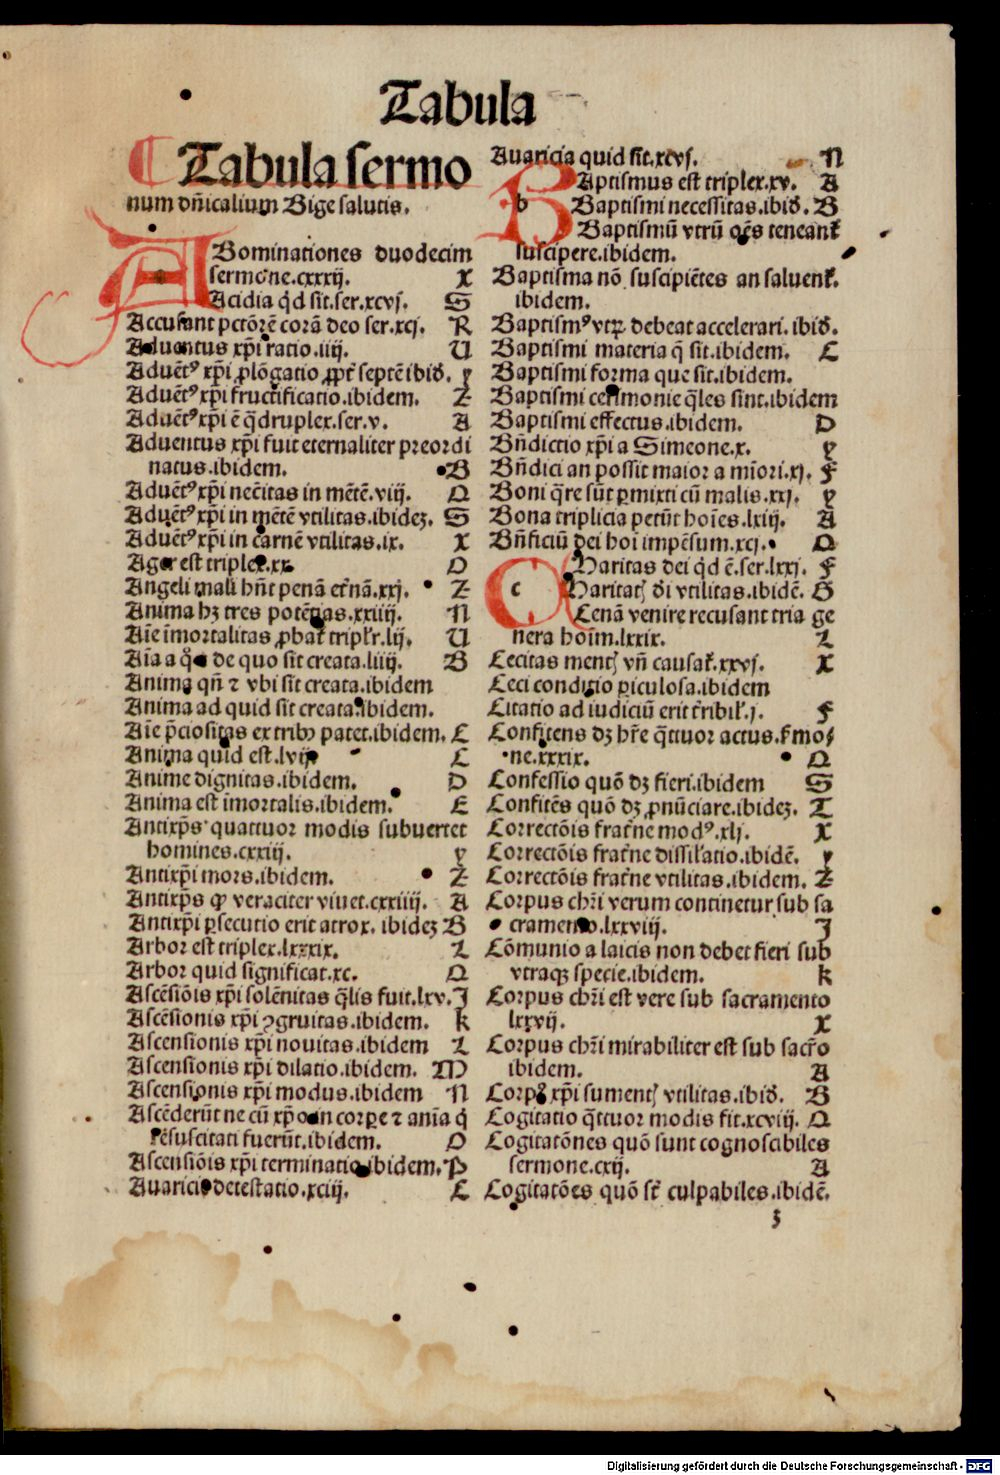 Tabula
Tabula sermo
num dn̄icalium Bige salutis.
ABominationes duodecim
sermone.cxxxij. X
Acidia qd sit.ser.xcvj. S
Accusant pctōrē corā deo ser.xcj. R
Aduentus xp̄i ratio.iiij. U
Aduētꝰ xp̄i ꝓlōgatio ꝓpt̄ septē ibid̄. y
Aduētꝰ xp̄i fructificatio.ibidem. Z
Aduētꝰ xp̄i ē q̄druplex.ser.v. A
Aduentus xp̄i fuit eternaliter preordi
natus.ibidem. B
Aduētꝰ xp̄i nec̄itas in mētē.viij. Q
Aduētꝰ xp̄i in mētē vtilitas.ibideꝫ. S
Aduētꝰ xp̄i in carnē vtilitas.ix. X
Ager est triplex.xx. O
Angeli mali hn̄t penā et̄nā.xxj. Z
Anima hꝫ tres potētias.xxiiij. N
Aīe īmortalitas ꝓbat̄ tripl̄r.lij. U
Aīa a q̄ de quo sit creata.liiij. B
Anima qn̄ ⁊ vbi sit creata.ibidem
Anima ad quid sit creata.ibidem.
Aīe p̄ciositas ex tribꝫ patet.ibidem. C
Anima quid est.lvij. C
Anime dignitas.ibidem. D
Anima est īmortalis.ibidem. E
Antixp̄s quattuor modis subuertet
homines.cxxiij. y
Antixp̄i mors.ibidem. Z
Antixp̄s ꝙ veraciter viuet.cxxiiij. A
Antixp̄i ꝑsecutio erit atrox. ibideꝫ B
Arbor est triplex.lxxxix. L
Arbor quid significat.xc. Q
Ascēsiōis xp̄i solēnitas q̄lis fuit.lxv. J
Ascēsionis xp̄i ꝯgruitas.ibidem. K
Ascensionis xp̄i nouitas.ibidem L
Ascensionis xp̄i dilatio.ibidem. M
Ascensionis xp̄i modus.ibidem N
Ascēderūt ne cū xp̄o in corꝑe ⁊ anīa q̇
resuscitati fuerūt.ibidem. O
Ascensiōis xp̄i terminatio.ibidem. P
Auaricie detestatio.xciij. C
Auaricia quid sit.xcvj. N
BAptismus est triplex.xv. A
b Baptismi necessitas.ibid̄. B
Baptismū vtrū oēs teneant̄
suscipere.ibidem.
Baptisma nō suscipiētes an saluent̄.
ibidem.
Baptismꝰ vtꝝ debeat accelerari. ibid̄.
Baptismi materia q̄ sit.ibidem. C
Baptismi forma que sit.ibidem.
Baptismi cerimonie q̄les sint.ibidem
Baptismi effectus.ibidem. D
Bn̄dictio xp̄i a Simeone.x. y
Bn̄dici an possit maior a mīori.xj. F
Boni q̄re sūt ꝑmixti cū malis.xxj. y
Bona triplicia petūt hoīes.lxiij. A
Bn̄ficiū dei hoī impēsum.xcj. Q
c Haritas dei qd ē.ser.lxxj. F
Haritatꝭ d̄i vtilitas.ibidē. G
Cenā venire recusant tria ge
nera hoīm.lxxix. L
Cecitas mentꝭ vn̄ causat̄.xxvj. X
Ceci conditio ꝑiculosa.ibidem
Citatio ad iudiciū erit t̄ribil̄.j. F
Confitens dꝫ hr̄e q̄ttuor actus.s̄mo⸗
ne.xxxix. Q
Confessio quō dꝫ fieri.ibidem S
Confitēs quō dꝫ ꝓnūciare.ibideꝫ. T
Correctōis frat̄ne modꝰ.xlj. X
Correctōis frat̄ne dissil̄atio.ibidē. y
Correctōis frat̄ne vtilitas.ibidem. Z
Corpus chr̄i verum continetur sub sa
cramento.lxxviij. J
Cōmunio a laicis non debet fieri sub
vtraqꝫ specie.ibidem. K
Corpus chr̄i est vere sub sacramento
lxxvij. X
Corpus chr̄i mirabiliter est sub sacr̄o
ibidem. A
Corpꝰ xp̄i sumentꝭ vtilitas.ibid̄. B
Cogitatio q̄ttuor modis fit.xcviij. Q
Cogitatōnes quō sunt cognoscibiles
sermone.cxij. A
Cogitatōes quō st̄ culpabiles.ibidē.
3
Digitalisierung gefördert durch die Deutsche Forschungsgemeinschaft - DFG